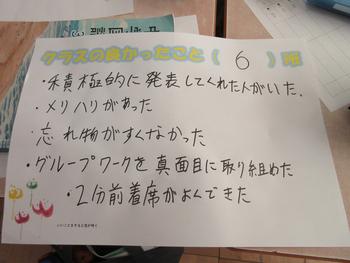 クラスの良かったこと( 6 )班
・積極的に発表してくれた人がいた。
・メリハリがあった
・忘れ物がすくなかった
・グループワークを真面目に取り組めた
・2分前着席がよくできた